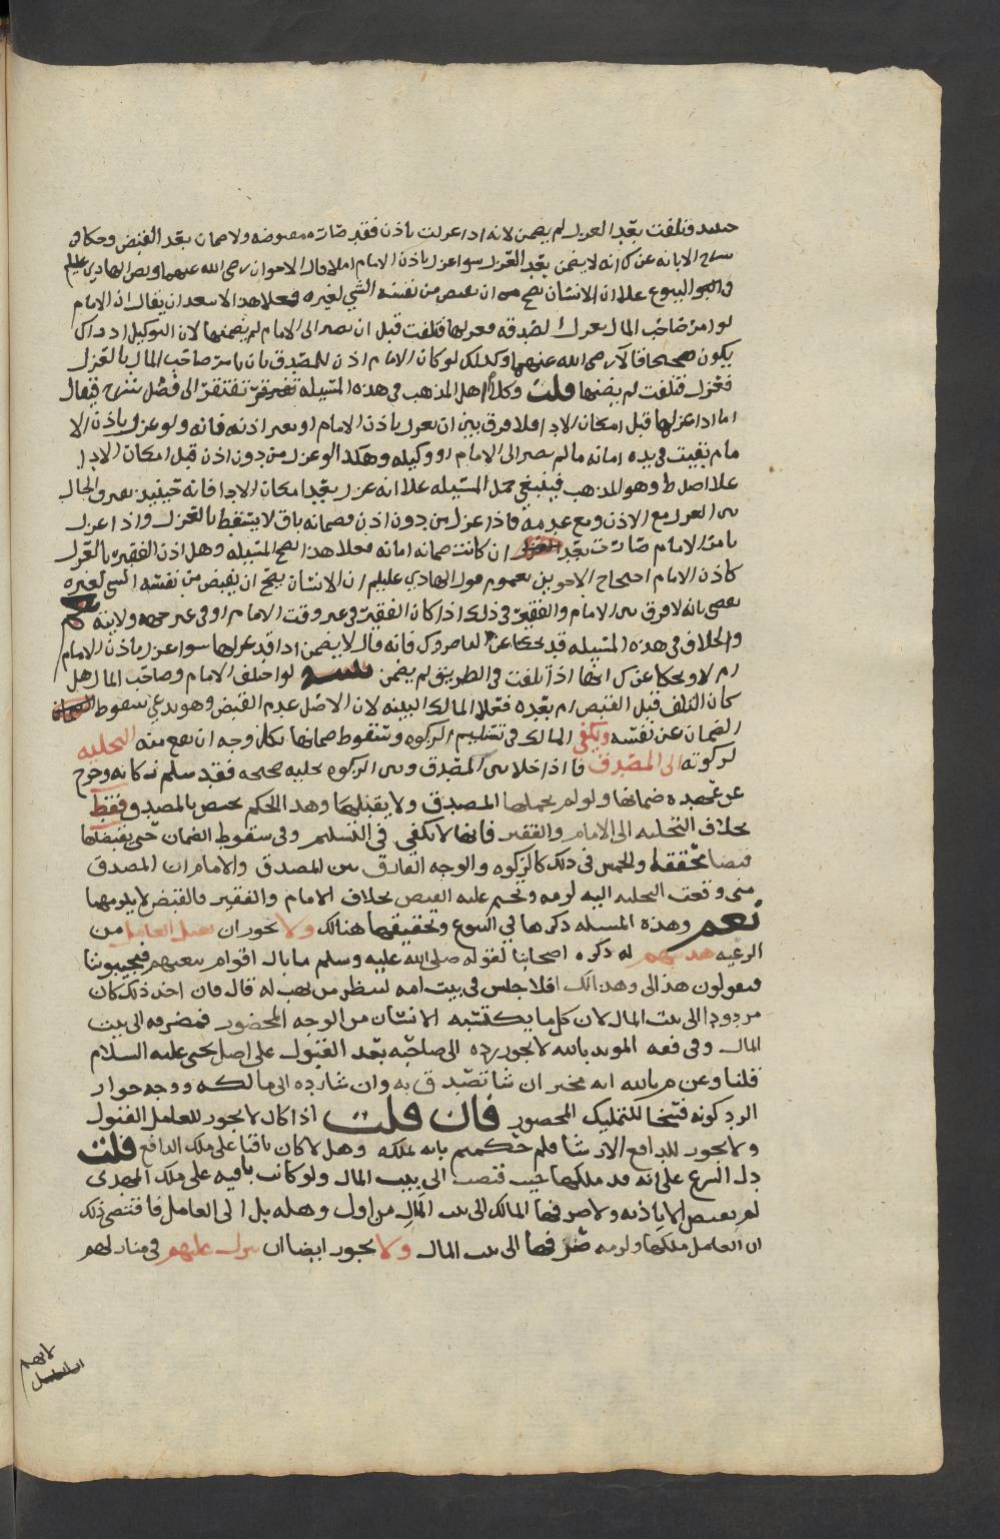 فتلفت بعد العزل لم يضمن لانه اذا عزلت باذن فقد صارت مقبوضه ولا ضمان بعد القبض وحكا في
الابانه عن ك انه لا يضمن بعد العزل سوا عزل باذن الامام ام لا قال الاخوان رضي الله عنهما ونص الهادي عليلم
في البيوع علا ان الانسان يصح من ان يقبض من نفسه الشي لغيره فعلا هذا لا يبعد ان يقال ان الامام
لو امر صاحب المال بعزل الصدقه فعزلها فتلفت قبل ان تصير الى الامام لم يضمنها لان التوكيل اذ ذاك
يكون صحيحا قالا رضي الله عنهما وكذلك لو كان الامام اذن للمصدق بان يامر صاحب المال بالعزل
فعزل فتلفت لم يضمنها قلت وكلام اهل المذهب في هذه المسيله تفتقر الى فضل شرح فيقال
اما اذا عزلها قبل امكان الادا فلا فرق بين ان يعزل باذن الامام او بغير اذنه فانه ولو عزل باذن الا
مام بقيت في يده امانه ما لم تصر الى الامام او وكيله وهكذا لو عزل من دون اذن قبل امكان الادا
علا اصل ط وهو المذهب فينبغي حمل المسيله علا انه عزل بعد امكان الادا فانه حينيذ يفرق الحال
بين العزل مع الاذن ومع عدمه فاذا عزل من دون اذن فضمانه باق لا يسقط بالعزل واذا عزل
بامر الامام صارت بعد ان كانت ضمانه امانه فعلا هذا تصح المسيله وهل اذن الفقير بالعزل
كاذن الامام احتجاج الاخوين بعموم قول الهادي عليلم ان الانسان يصح ان يقبض من نفسه الشي لغيره
يقضي بانه لا فرق بين الامام والفقير في ذلك اذا كان الفقير في غير وقت الامام او في غير جهه ولايته
والخلاف في هذه المسيله قد حكا عن الناصر وك فانه قال لا يضمن اذا قد عزلها سوا عزل باذن الامام
ام لا وحكا عن ك انها اذا تلفت في الطريق لم يضمن لو اختلف الامام وصاحب المال هل
كان التلف قبل القبض ام بعده فعلا المالك البينه لان الاصل عدم القبض وهو يدعي سقوط
الضمان عن نفسه ويكفي المالك في تسليم الزكوه وسقوط ضمانها بكل وجه ان يقع منه التخليه
لزكوته الى المصدق فاذا خلا بين المصدق وبين الزكوه تخليه صحيحه فقد سلم زكاته وخرج
عن عهده ضمانها ولو لم يحملها المصدق ولا يقبلها وهذا الحكم يختص بالمصدق فقط
بخلاف التخليه الى الامام والفقير فانها لا تكفي في التسليم وفي سقوط الضمان حتى يقبضاها
قبضا محققا والخمس في ذلك كالزكوه والوجه الفارق بين المصدق والامام ان المصدق
متى وقعت التخليه اليه لزمه وتحتم عليه القبض بخلاف الامام والفقير فالقبض لا يلزمهما
نعم وهذه المسيله ذكرها في البيوع وتحقيقها هنالك ولا يجوز ان يقبل العامل من
الرعيه هديتهم له ذكره اصحابنا لقوله صلى الله عليه وسلم ما بال اقوام نبعثهم فيجيبوننا
فيقولون هذا لي وهذا لك افلا جلس في بيت امه لينظر من يهب له قال فان اخذ ذلك كان
مردودا الى بيت المال لان كل ما يكتسبه الانسان من الوجه المحضور فمصرفه الى بيت
المال وفي فقه المويد بالله لا يجوز رده الى صاحبه بعد القبول على اصل يحيى عليه السلام
قلنا وعن م بالله انه مخير ان شا تصدق به وان شا رده الى مالكه ووجه جواز
الرد كونه فسخا للتمليك المحضور فان قلت اذا كان لا يجوز للعامل القبول
ولا يجوز للدافع الارشا فلم حكمتم بانه يملكه وهل لا كان باقيا على ملك الدافع قلت
دل الشرع على انه قد ملكها حيث قبضت الى بيت المال ولو كانت باقيه على ملك المهدي
لم يقبض الا باذنه ولا صرفها المالك الى بيت المال من اول وهله بل الى العامل فاقتضى ذلك
ان العامل ملكها ولزمه صرفها الى بيت المال ولا يجوز ايضا ان ينزل عليهم في منازلهم
لانهم